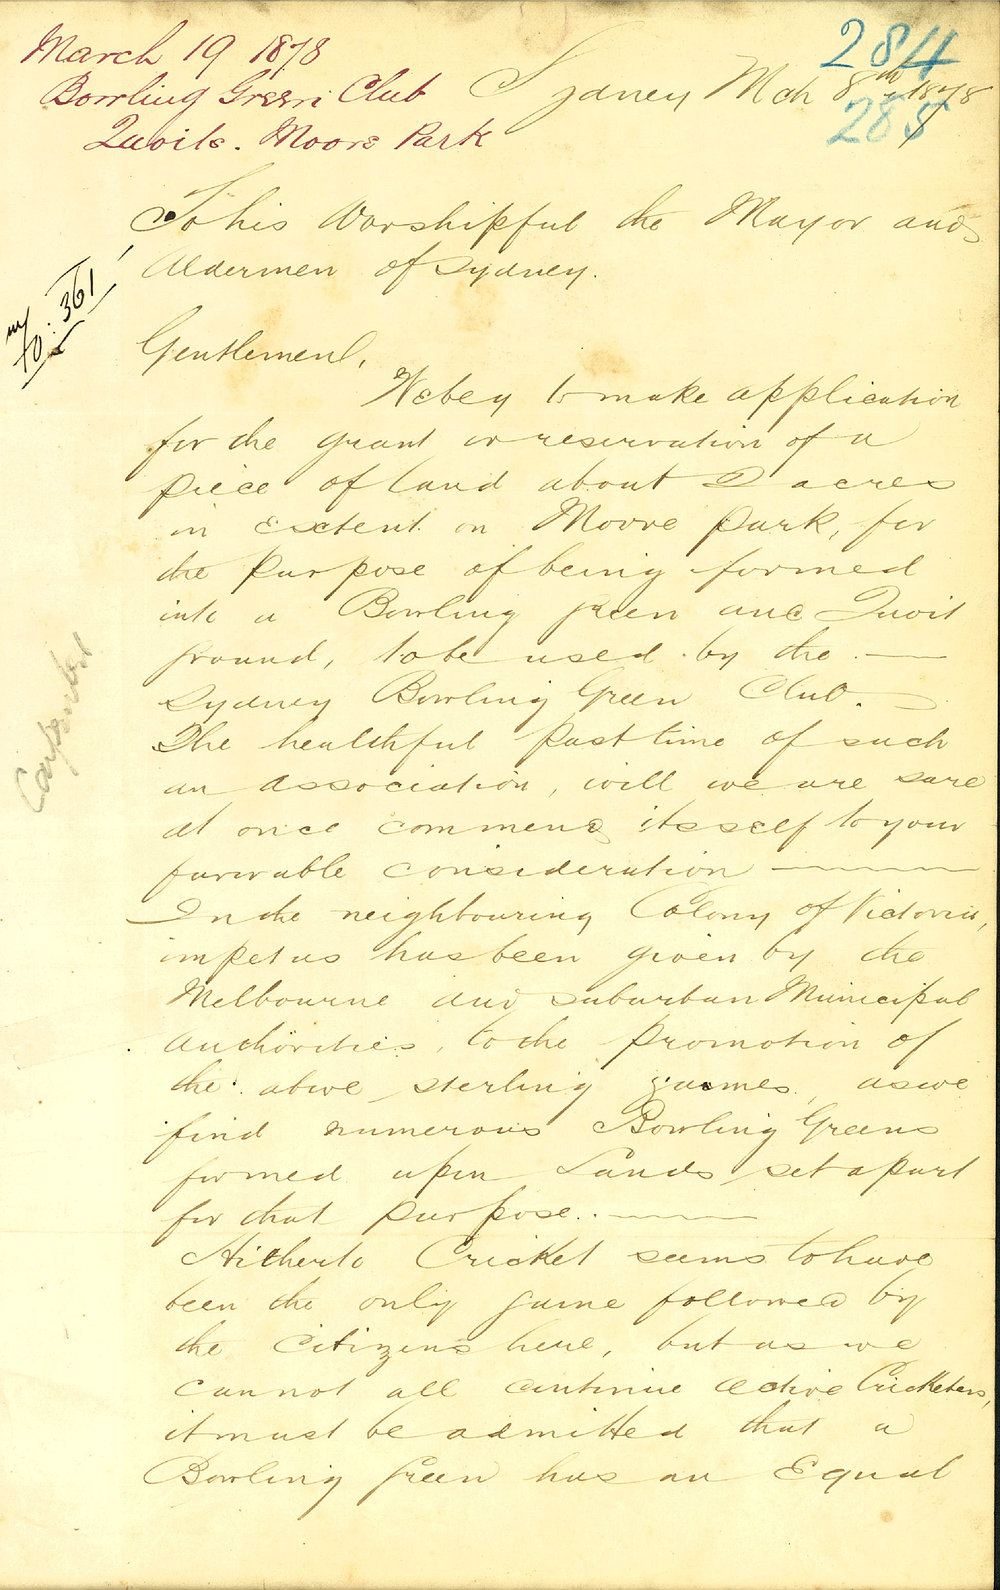 March 19 1878
Bowling Green Club
Quoits. Moore Park
284
285
Sydney Mch 8th 1878
To his Worshipful the Mayor and
Aldermen of Sydney.
361
Gentlemen,
We beg to make application
for the grant or reservation of a
piece of land about 2 acres
in extent on Moore Park, for
the purpose of being formed
into a Bowling Green and Quoit
ground, to be used by the —
Sydney Bowling Green Club. —
The healthful past time of such
an association, will we are sure
at once commend itsself to your
favorable consideration —
In the neighbouring Colony of Victoria,
impetus has been given by the
Melbourne and suburban Municipal
Authorities, to the promotion of
the above sterling games, as we
find numerous Bowling Greens
formed upon Lands set apart
for that purpose. —
Hitherto Cricket seems to have
been the only game followed by
the Citizens here, but as we
cannot all continue active Cricketers,
it must be admitted that a
Bowling Green has an Equal